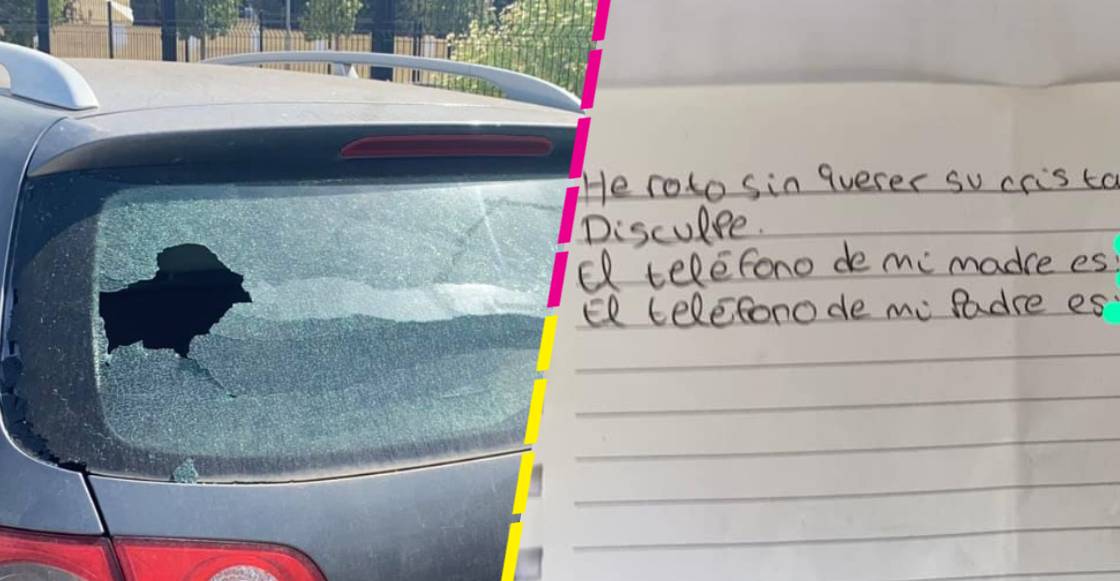 He roto sin querer su crista
Disculpe.
El teléfono de mi madre es:
El teléfono de mi padre es: